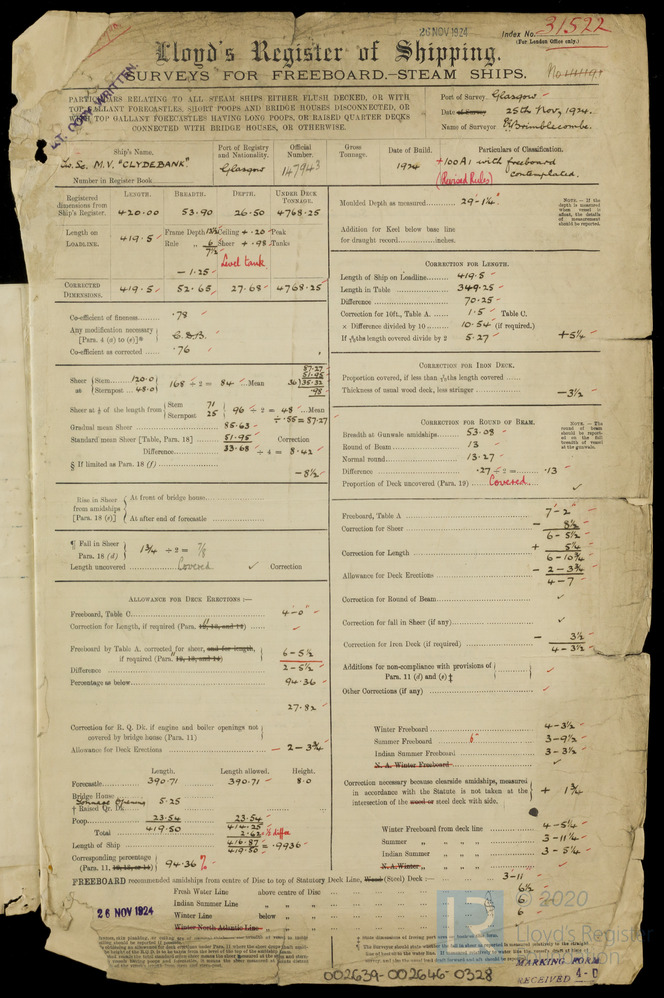 26 NOV 1924
Index No. 31522
(For London Office only.)
Lloyd's Register of Shipping.
SURVEYS FOR FREEBOARD.—STEAM SHIPS.
PARTICULARS RELATING TO ALL STEAM SHIPS EITHER FLUSH DECKED, OR WITH
TOP GALLANT FORECASTLES, SHORT POOPS AND BRIDGE HOUSES DISCONNECTED, OR
WITH TOP GALLANT FORECASTLES HAVING LONG POOPS, OR RAISED QUARTER DECKS
CONNECTED WITH BRIDGE HOUSES, OR OTHERWISE.
Port of Survey Glasgow
Date of Survey 25th Nov, 1924.
Name of Surveyor Brimblecombe.
Ship's Name. Port of Registry and Nationality. Official Number. Gross Tonnage. Date of Build. Particulars of Classification.
M.V. "CLYDEBANK" Glasgow 147943 1924 +100A1 with freeboard contemplated.
(Revised Rules)
Number in Register Book
LENGTH. BREADTH. DEPTH. UNDER DECK TONNAGE.
Registered dimensions from Ship's Register. 420.00 53.90 26.50 4768.25
Length on LOADLINE. 419.5 Frame Depth Ceiling + .20 Peak
Rule 6 Sheer + .98 Tanks
7½
Level tank
- 1.25
CORRECTED DIMENSIONS. 419.5 52.65 27.68 4768.25
Co-efficient of fineness .78
Any modification necessary [Para. 4 (a) to (e)]* C.D.B.
Co-efficient as corrected .76
Sheer at Stem 120.0 Sternpost 48.0 168 ÷ 2 = 84 Mean
87.27
51.95
36)35.32
.98
Sheer at ⅛ of the length from Stem 71 Sternpost 25 96 ÷ 2 = 48 Mean
÷ .55 = 87.27
Gradual mean Sheer 85.63
Standard mean Sheer [Table, Para. 18] 51.95 Correction
Difference 33.68 ÷ 4 = 8.42
§ If limited as Para. 18 (f) - 8½
Rise in Sheer from amidships [Para. 18 (e)] At front of bridge house
At after end of forecastle
¶ Fall in Sheer Para. 18 (d) 1¾ ÷ 2 = ⅞
Length uncovered Covered Correction
ALLOWANCE FOR DECK ERECTIONS :—
Freeboard, Table C. 4-0
Correction for Length, if required (Para. 12, 13, and 14)
Freeboard by Table A. corrected for sheer, and for length, if required (Para. 12, 13, and 14) 6-5½
Difference 2-5½
Percentage as below 94.36
27.82
Correction for R. Q. Dk. if engine and boiler openings not covered by bridge house (Para. 11)
Allowance for Deck Erections - 2-3¾
Length. Length allowed. Height.
Forecastle 390.71 390.71 8.0
Bridge House
Tonnage Opening 5.25
† Raised Qr. Dk.
Poop 23.54 23.54
Total 419.50 414.25
2.62 ½ differ
Length of Ship 416.87
419.50 = .9936
Corresponding percentage (Para. 11, 12, 13, or 14) 94.36 %
Moulded Depth as measured 29-1¼
NOTE.—If the depth is measured when vessel is afloat, the details of measurement should be reported.
Addition for Keel below base line for draught record inches.
CORRECTION FOR LENGTH.
Length of Ship on Loadline 419.5
Length in Table 349.25
Difference 70.25
Correction for 10ft., Table A. 1.5 Table C.
× Difference divided by 10 10.54 (if required.)
If 6/10ths length covered divide by 2 5.27 +5¼
CORRECTION FOR IRON DECK.
Proportion covered, if less than 7/10ths length covered
Thickness of usual wood deck, less stringer - 3½
CORRECTION FOR ROUND OF BEAM.
Breadth at Gunwale amidships 53.08
NOTE.—The round of beam should be reported on the full breadth of vessel at the gunwale.
Round of Beam 13
Normal round 13.27
Difference .27 ÷ 2 = .13
Proportion of Deck uncovered (Para. 19) Covered.
Freeboard, Table A 7'-2"
Correction for Sheer - 8½
6-5½
Correction for Length + 5¼
6-10¾
Allowance for Deck Erections - 2-3¾
4-7
Correction for Round of Beam
Correction for fall in Sheer (if any)
Correction for Iron Deck (if required) - 3½
4-3½
Additions for non-compliance with provisions of Para. 11 (d) and (e) ‡
Other Corrections (if any)
Winter Freeboard 4-3½
Summer Freeboard 6" 3-9½
Indian Summer Freeboard 3-3½
N. A. Winter Freeboard
Correction necessary because clearside amidships, measured in accordance with the Statute is not taken at the intersection of the wood or steel deck with side. + 1¾
Winter Freeboard from deck line 4-5¼
Summer " " " " 3-11¼
Indian Summer " " " " 3-5¼
N. A. Winter " " " "
FREEBOARD recommended amidships from centre of Disc to top of Statutory Deck Line, Wood (Steel) Deck :— 3-11
Fresh Water Line above centre of Disc 6½
Indian Summer Line " " 6
Winter Line below " 6
Winter North Atlantic Line " "
26 NOV 1924
© 2020
Lloyd's Register
MARKING FORM
RECEIVED 4-D
002639-002646-0328